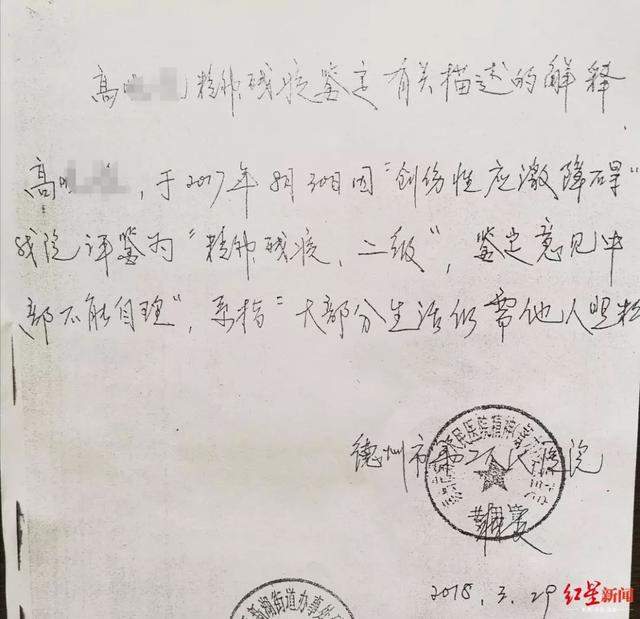 高 精神残疾鉴定有关描述的解释
高 ,于2017年8月30日因"创伤性应激障碍"
我院评鉴为"精神残疾,二级",鉴定意见中
部不能自理",系指"大部分生活仍需他人照料
德州市第二人民医院
2018.3.29
街道办事处
红星新闻